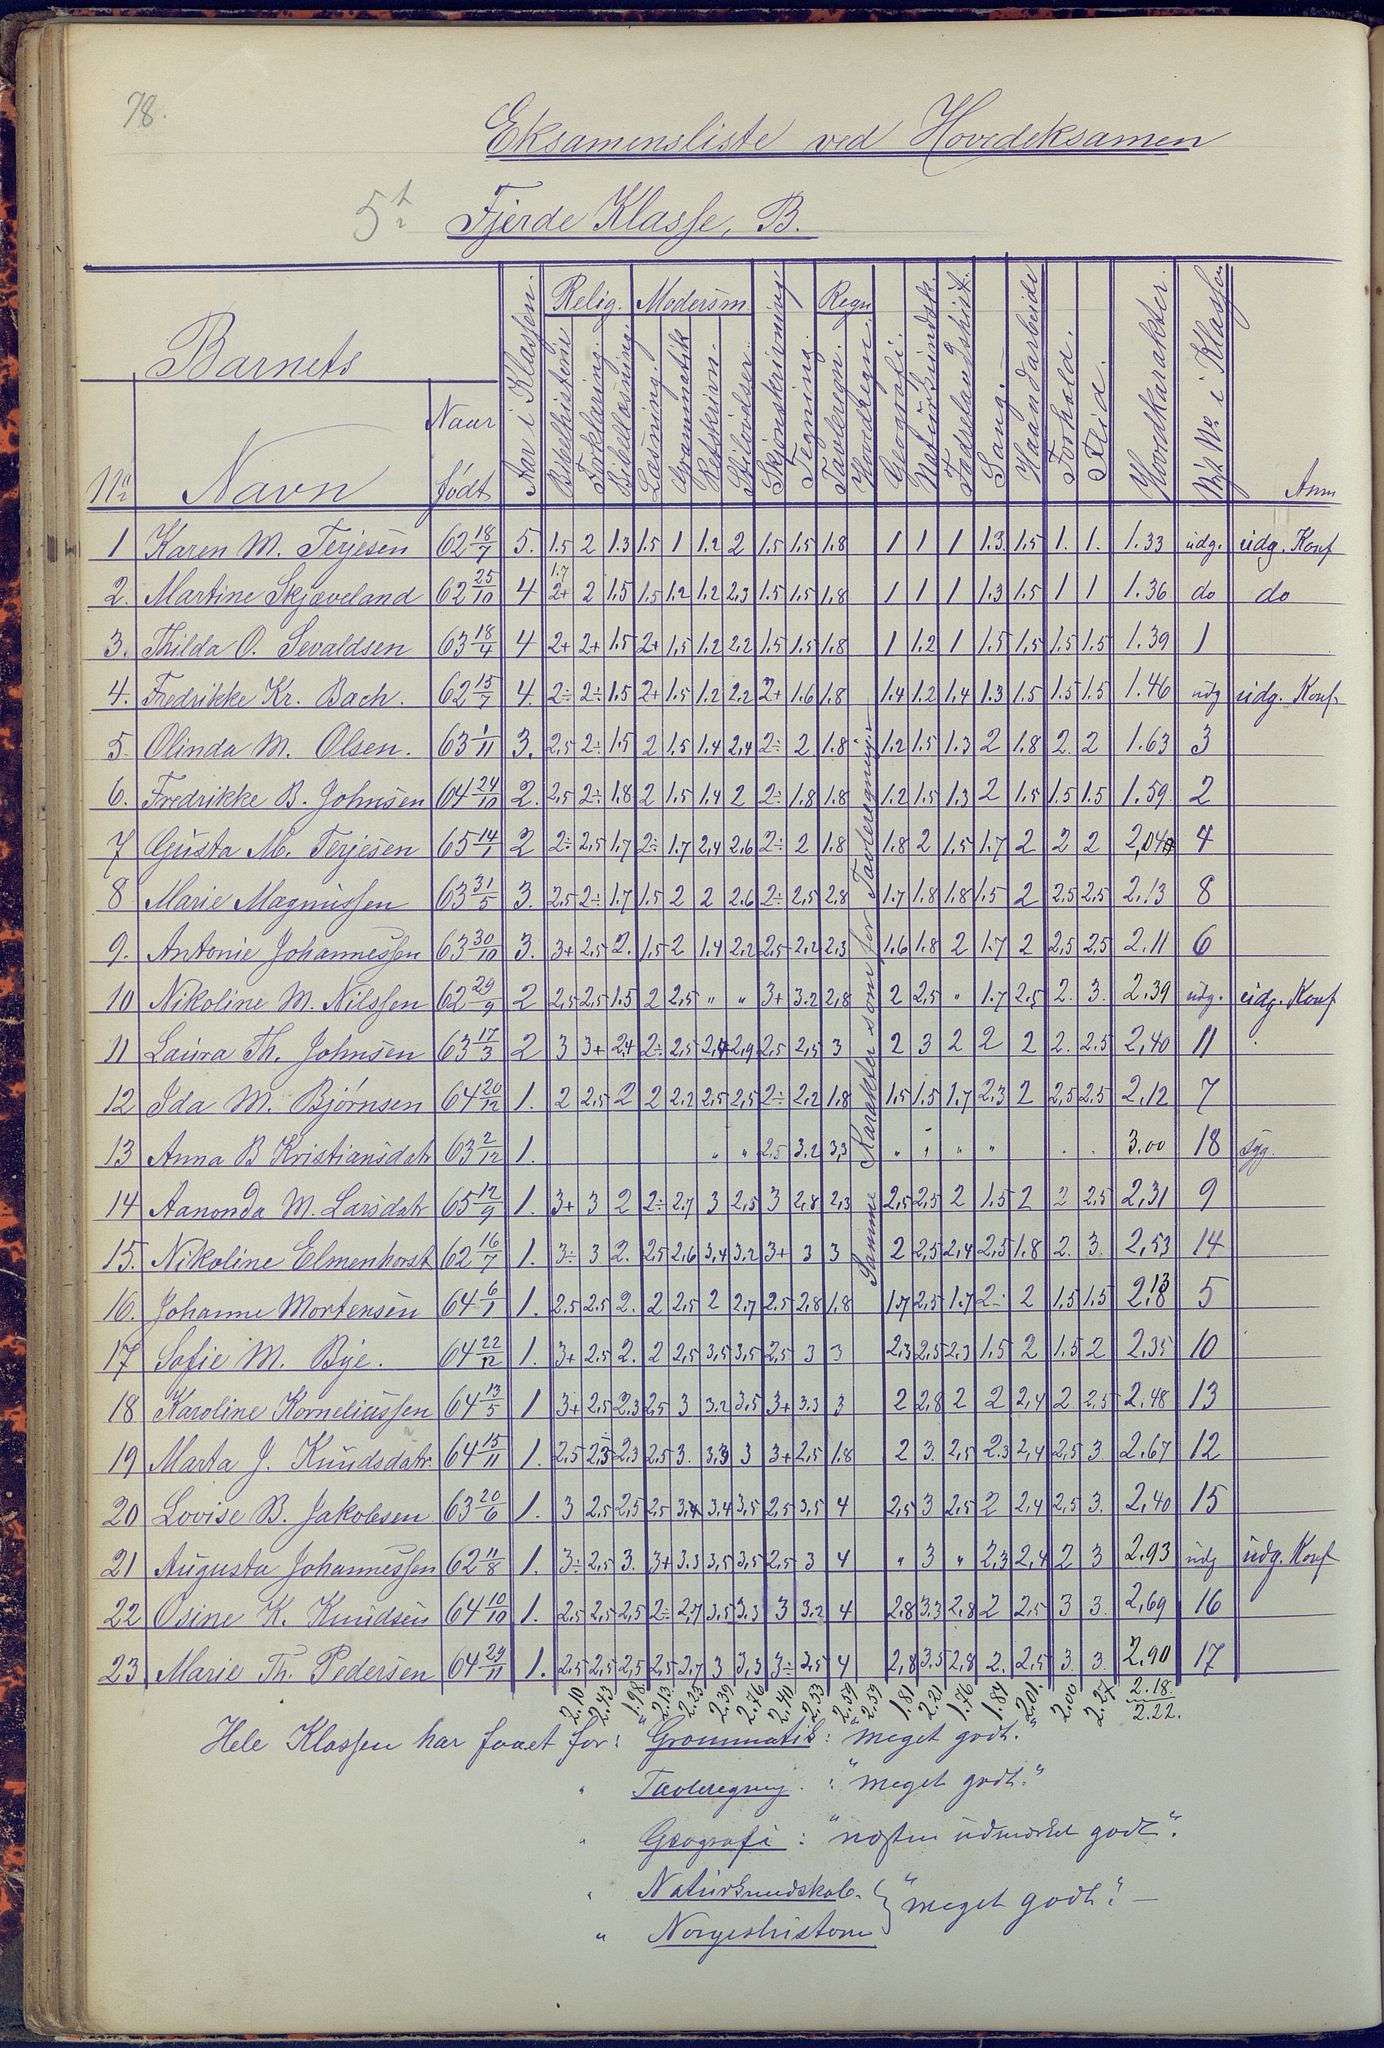 78.
Eksamensliste ved Hovedeksamen
5te Fjerde Klasse, B.
Barnets
No Navn Naar født Aar i Klassen. Relig. Bibelhistorie Forklaring. Bibellæsning. Modersm Læsning. Grammatik Retskrivn. Stiløvelser. Skjønskrivning Tegning. Regn Tavleregn. Hovedregn. Geografi. Naturkundsk. Fædrelandshist. Sang. Haandarbeide Forhold. Flid. Hovedkarakter. Nyt No. i Klassen Anm
1 Karen M. Terjesen 62 18/7 5. 1.5 2 1.3 1.5 1 1.2 2 1.5 1.5 1.8 1 1 1 1.3 1.5 1. 1. 1.33 udg. udg. Konf
2. Martine Skjæveland 62 25/10 4 1.7 2+ 2 1.5 1.5 1.2 1.2 2.3 1.5 1.5 1.8 1 1 1 1.3 1.5 1 1 1.36 do do
3. Thilda O. Sevaldsen 63 18/4 4 2+ 2+ 1.5 2+ 1.5 1.2 2.2 1.5 1.5 1.8 1 1.2 1 1.5 1.5 1.5 1.5 1.39 1
4. Fredrikke Kr. Bach. 62 15/7 4. 2÷ 2÷ 1.5 2+ 1.5 1.2 2.2 2+ 1.6 1.8 1.4 1.2 1.4 1.3 1.5 1.5 1.5 1.46 udg udg. Konf.
5. Olinda M. Olsen. 63 1/11 3. 2,5 2÷ 1.5 2 1.5 1.4 2,4 2÷ 2 1.8 1.2 1.5 1.3 2 1.8 2. 2 1.63 3
6. Fredrikke B. Johnsen 64 24/10 2. 2,5 2÷ 1.8 2 1.5 1.4 2 2÷ 1.8 1.8 1.2 1.5 1.3 2 1.5 1.5 1.5 1.59 2
7 Gusta M. Terjesen 65 14/1 2 2÷ 2,5 1.7 2÷ 1.7 2,4 2,6 2÷ 2 1.8 1.8 2 1.5 1.7 2 2 2 2,04 4
8 Marie Magnussen 63 31/5 3. 2,5 2÷ 1.7 1.5 2 2 2.6 2÷ 2,5 2,8 1.7 1.8 1.8 1.5 2 2,5 2,5 2.13 8
9. Antonie Johannessen 63 30/10 3. 3+ 2,5 2. 1.5 2 1.4 2.2 2,5 2.2 2,3 1.6 1.8 2 1.7 2 2,5 2,5 2.11 6
10 Nikoline M. Nilssen 62 29/9 2 2,5 2,5 1.5 2 2,5 " " 3+ 3.2 2,8 2 2,5 " 1.7 2,5 2. 3. 2.39 udg. udg. Konf
11 Laura Th. Johnsen 63 17/3 2 3 3+ 2,4 2÷ 2,5 2,4 2,9 2,5 2,5 3 2 3 2 2 2 2. 2.5 2,40 11
12 Ida M. Bjørnsen 64 20/12 1. 2 2,5 2 2 2.2 2,5 2,5 2÷ 2.2 1.8 1.5 1.5 1.7 2,3 2 2,5 2,5 2,12 7
13 Anna B Kristiansdatr 63 2/12 1. " " 2,5 3.2 3,3 " " " " . . 3.00 18 syg.
14 Aanonda M. Larsdatr 65 12/9 1. 3+ 3 2 2÷ 2.7 3 2,5 3 2,8 2,3 2,5 2,5 2 1.5 2 2 2,5 2,31 9
15. Nikoline Elmenhorst 62 16/7 1. 3÷ 3 2. 2,5 2,6 3,4 3.2 3+ 3 3 2 2,5 2,4 2,5 1.8 2. 3. 2,53 14
16. Johanne Mortensen 64 6/1 1. 2.5 2.5 2. 2 2,5 2 2,7 2,5 2,8 1.8 1.7 2,5 1.7 2÷ 2 1.5 1.5 2.13 5
17 Sofie M. Bye. 64 22/12 1. 3+ 2,5 2. 2 2,5 3,5 3,5 2,5 3 3 2.3 2.5 2.3 1.5 2 1.5 2 2.35 10
18 Karoline Korneliussen 64 13/5 1 3+ 2,5 2.3 2,5 3 3.2 3,5 3+ 3.3 3 2 2,8 2 2 2,4 2 2,5 2.48 13
19 Marta J. Knudsdatr 64 15/11 1. 2,5 2,5 2,3 2,5 3. 3,3 3 3+ 2,5 1.8 2 3. 2,5 2.3 2,4 2,5 3 2.67 12
20 Lovise B. Jakobsen 63 20/6 1. 3 2,5 2,5 2,5 3,4 3,4 3,5 2,5 3,5 4 2,5 3 2,5 2 2,4 2,5 3. 2,40 15
21 Augusta Johannessen 62 11/8 1. 3÷ 2,5 3. 3+ 3.3 3,5 3,5 2,5 3 4 " 3 " 2,3 2,4 2 3 2.93 udg udg. Konf
22 Osine K. Knudsen 64 10/10 1. 2,5 2,5 2,5 2÷ 2,7 3,5 3,3 3 3.2 4 2.8 3.3 2,8 2 2,5 3 3. 2,69 16
23. Marie Th. Pedersen 64 29/11 1. 2,5 2,5 2,5 2,5 2,7 3 3,3 3÷ 2,5 4 2,8 3.5 2,8 2. 2,5 3. 3. 2.90 17
Samme Karakter som for Tavleregning.
2.10 2.43 1.98 2.13 2.25 2.39 2.76 2.40 2.53 2.59 2.59 1.81 2.21 1.76 1.84 2.01. 2.00 2.27 2.18.
2.22.
Hele Klassen har faaet for: "Grammatik: "meget godt."
" Tavleregning. : "meget godt."
" Geografi : "næsten udmærket godt".
" Naturkundskab. } "meget godt." —
" Norgeshistorie